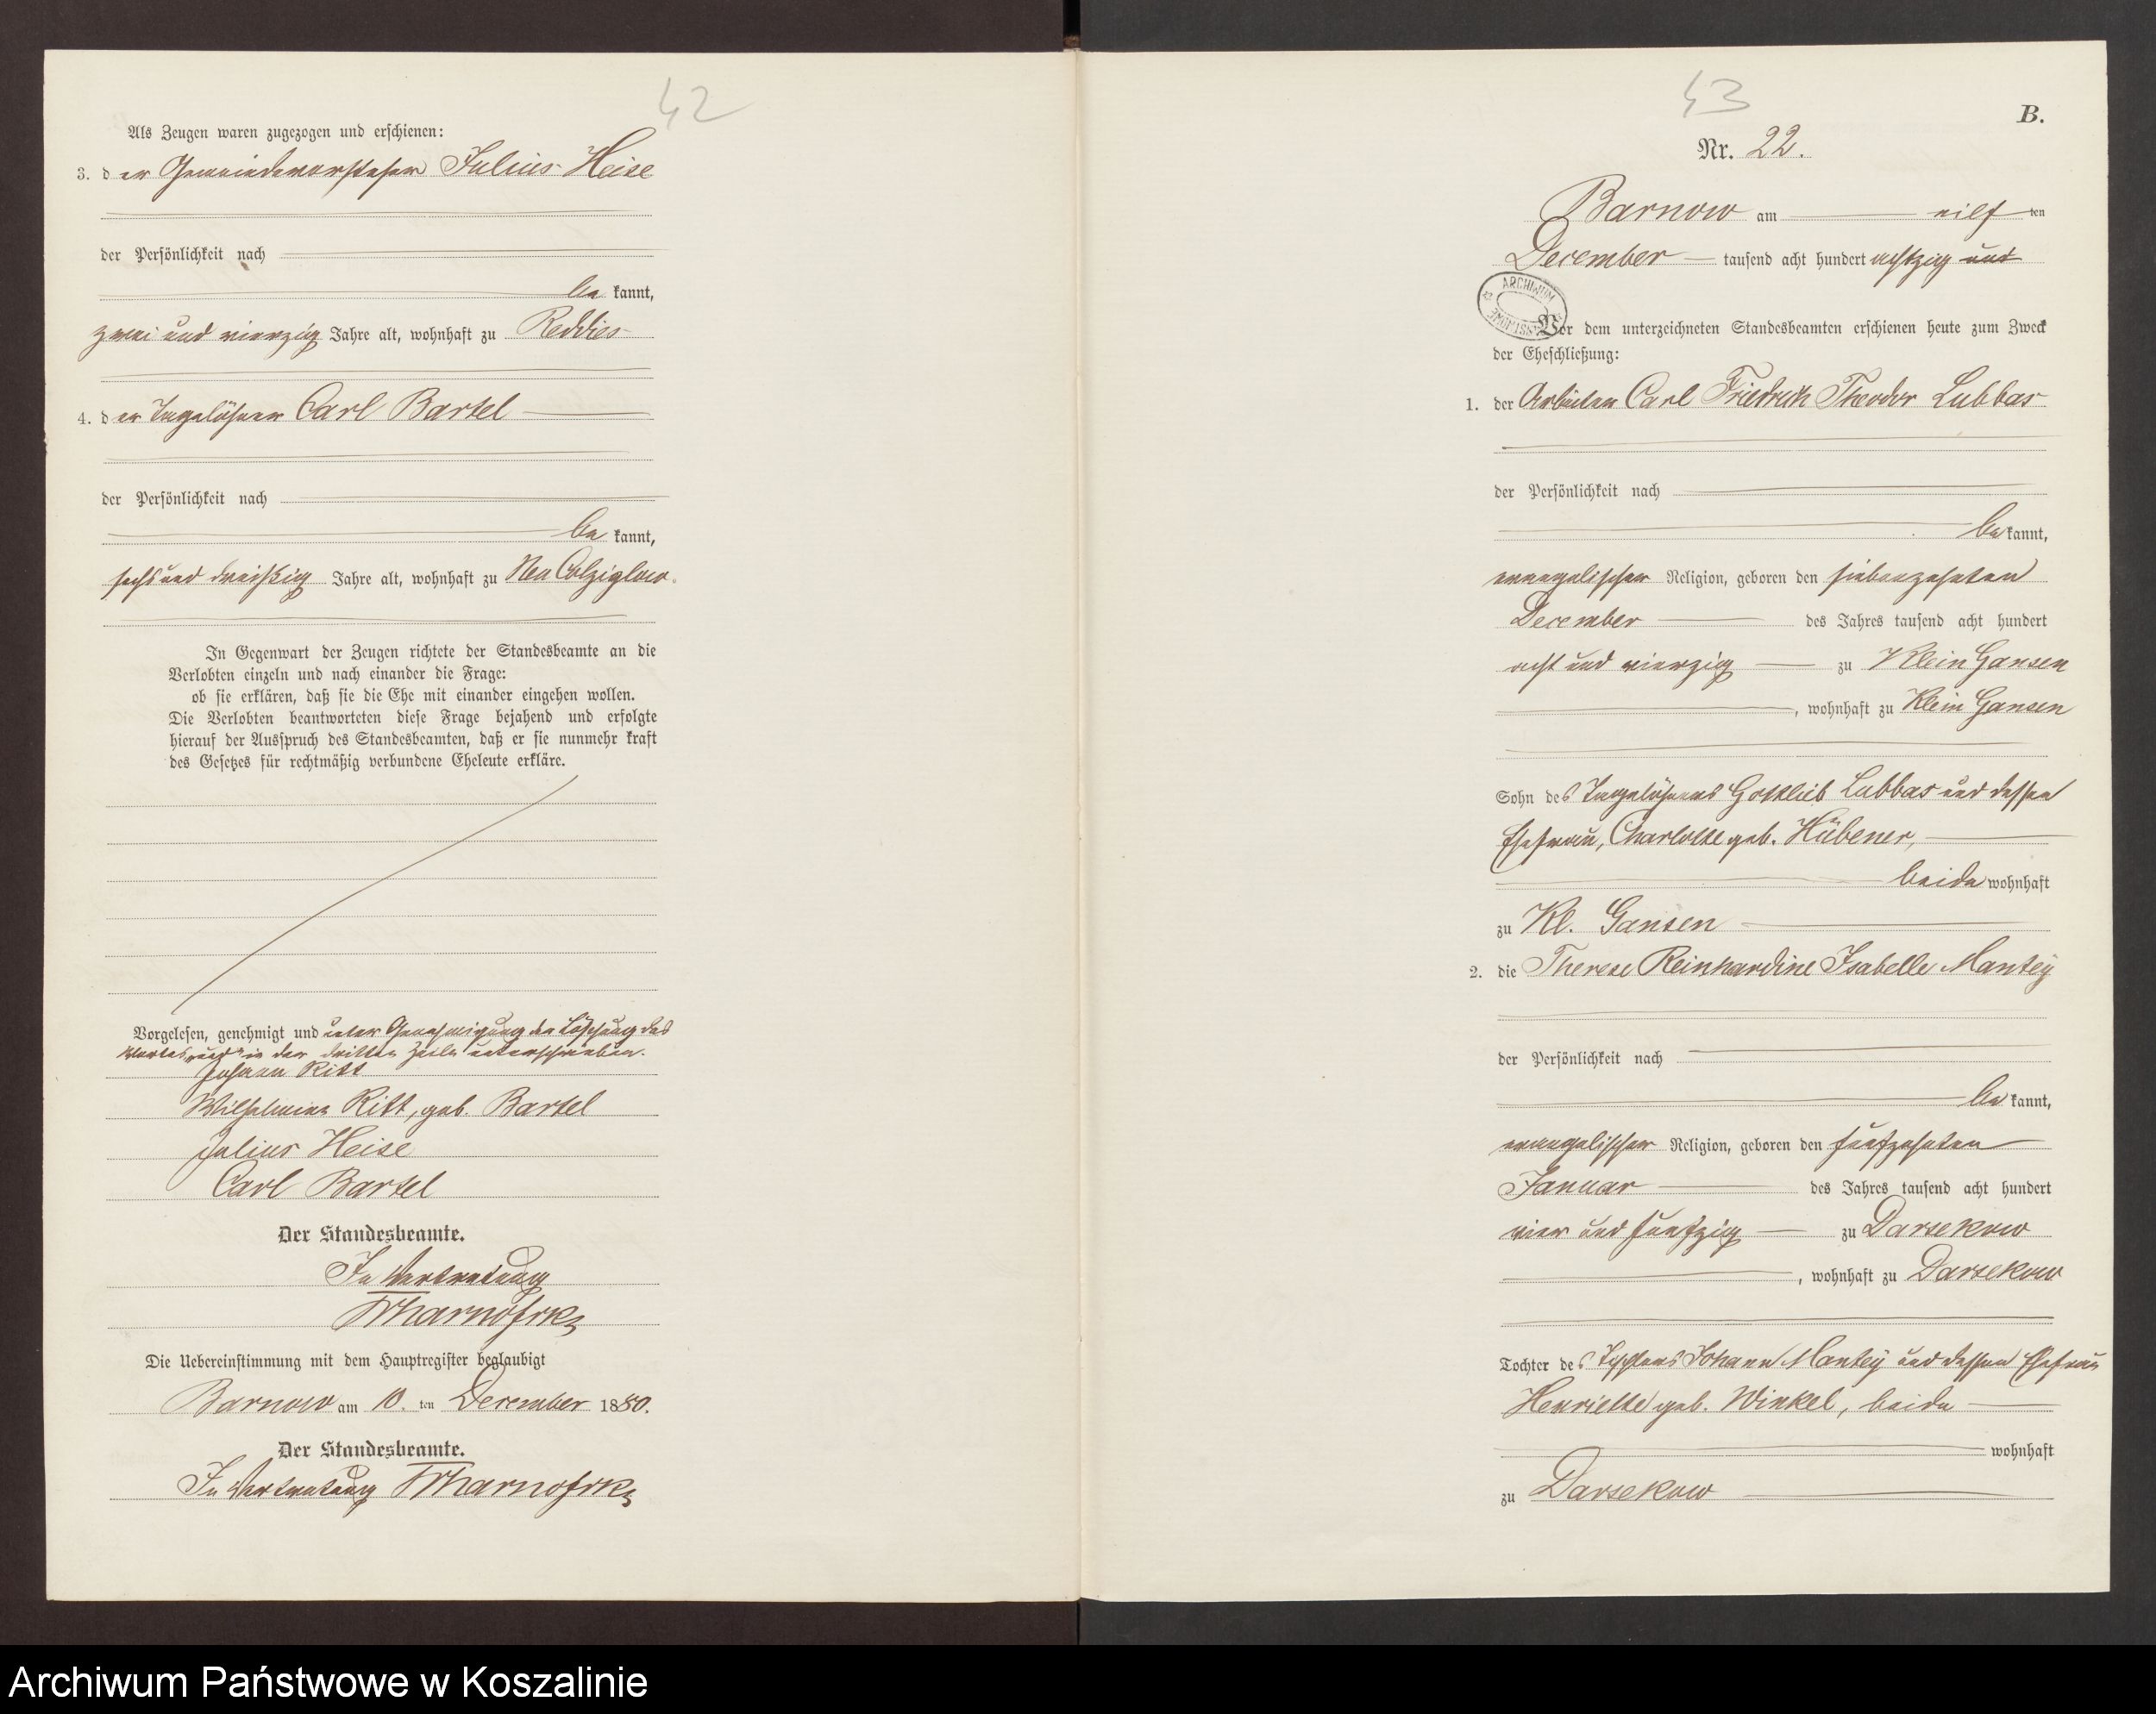 42
Als Zeugen waren zugezogen und erschienen:
3. der Gemeindevorsteher Julius Heise
der Persönlichkeit nach
bekannt,
zwei und vierzig Jahre alt, wohnhaft zu Reddies
4. der Tagelöhner Carl Bartel
der Persönlichkeit nach
bekannt,
sechs und dreißig Jahre alt, wohnhaft zu Neu Colziglow.
In Gegenwart der Zeugen richtete der Standesbeamte an die
Verlobten einzeln und nach einander die Frage:
ob sie erklären, daß sie die Ehe mit einander eingehen wollen.
Die Verlobten beantworteten diese Frage bejahend und erfolgte
hierauf der Ausspruch des Standesbeamten, daß er sie nunmehr kraft
des Gesetzes für rechtmäßig verbundene Eheleute erkläre.
Vorgelesen, genehmigt und unter Genehmigung der Löschung des
Wortes „und“ in der dritten Zeile unterschrieben.
Johann Ritt
Wilhelmine Ritt, geb. Bartel
Julius Heise
Carl Bartel
Der Standesbeamte.
In Vertretung
Die Uebereinstimmung mit dem Hauptregister beglaubigt
Barnow am 10. ten December 1880.
Der Standesbeamte.
In Vertretung
43
B.
Nr. 22.
Barnow am eilf ten
December tausend acht hundert achtzig und
ARCHIWUM
Vor dem unterzeichneten Standesbeamten erschienen heute zum Zweck
der Eheschließung:
1. der Arbeiter Carl Friedrich Theodor Lubbas
der Persönlichkeit nach
bekannt,
evangelischer Religion, geboren den siebenzehnten
December des Jahres tausend acht hundert
acht und vierzig zu Klein Gansen
, wohnhaft zu Klein Gansen
Sohn des Tagelöhners Gottlieb Lubbas und dessen
Ehefrau, Charlotte geb. Hübener,
beide wohnhaft
zu Kl. Gansen
2. die Therese Reinhardine Isabelle Mantey
der Persönlichkeit nach
bekannt,
evangelischer Religion, geboren den fünfzehnten
Januar des Jahres tausend acht hundert
vier und fünfzig zu Darsekow
, wohnhaft zu Darsekow
Tochter des Tischlers Johann Mantey und dessen Ehefrau
Henriette geb. Winkel, beide
wohnhaft
zu Darsekow
Archiwum Państwowe w Koszalinie